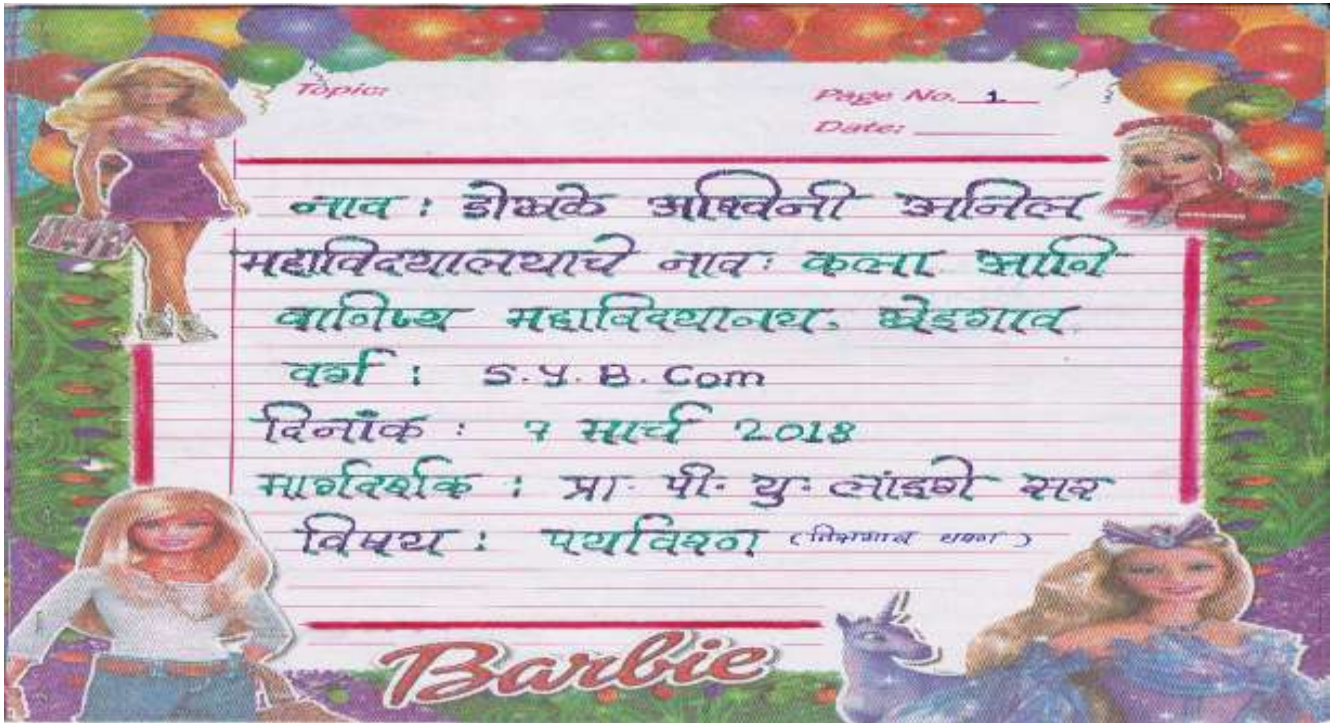 Topic:
Page No. 1
Date:
नाव : डोळके अश्विनी अनिल
महाविदयालयाचे नाव: कला आणि
वाणिज्य महाविदयालय. खेडगाव
वर्ग : S.Y.B.Com
दिनांक : 7 मार्च 2018
मार्गदर्शक : प्रा. पी. यु. लांडगे सर
विषय : पर्यावरण
Barbie